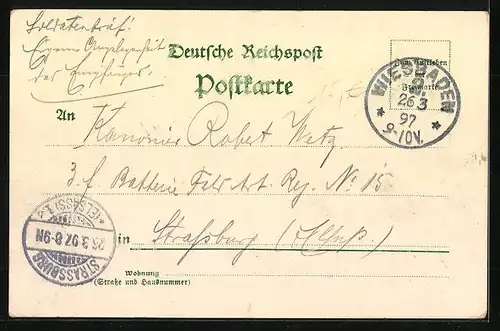 Soldatenbrief!
Eigene Angelegenheit
des Empfängers.
Deutsche Reichspost
Postkarte
Zum Aufkleben
der
Freimarke
WIESBADEN
26 3
97
9-10V.
An
Kanonier Robert
3. f. Batterie Feld Art. Reg. No 15
in Straßburg (Elsaß)
STRASSBURG
26.3.97.8-9N
(ELSASS) 1.
Wohnung
(Straße und Hausnummer)